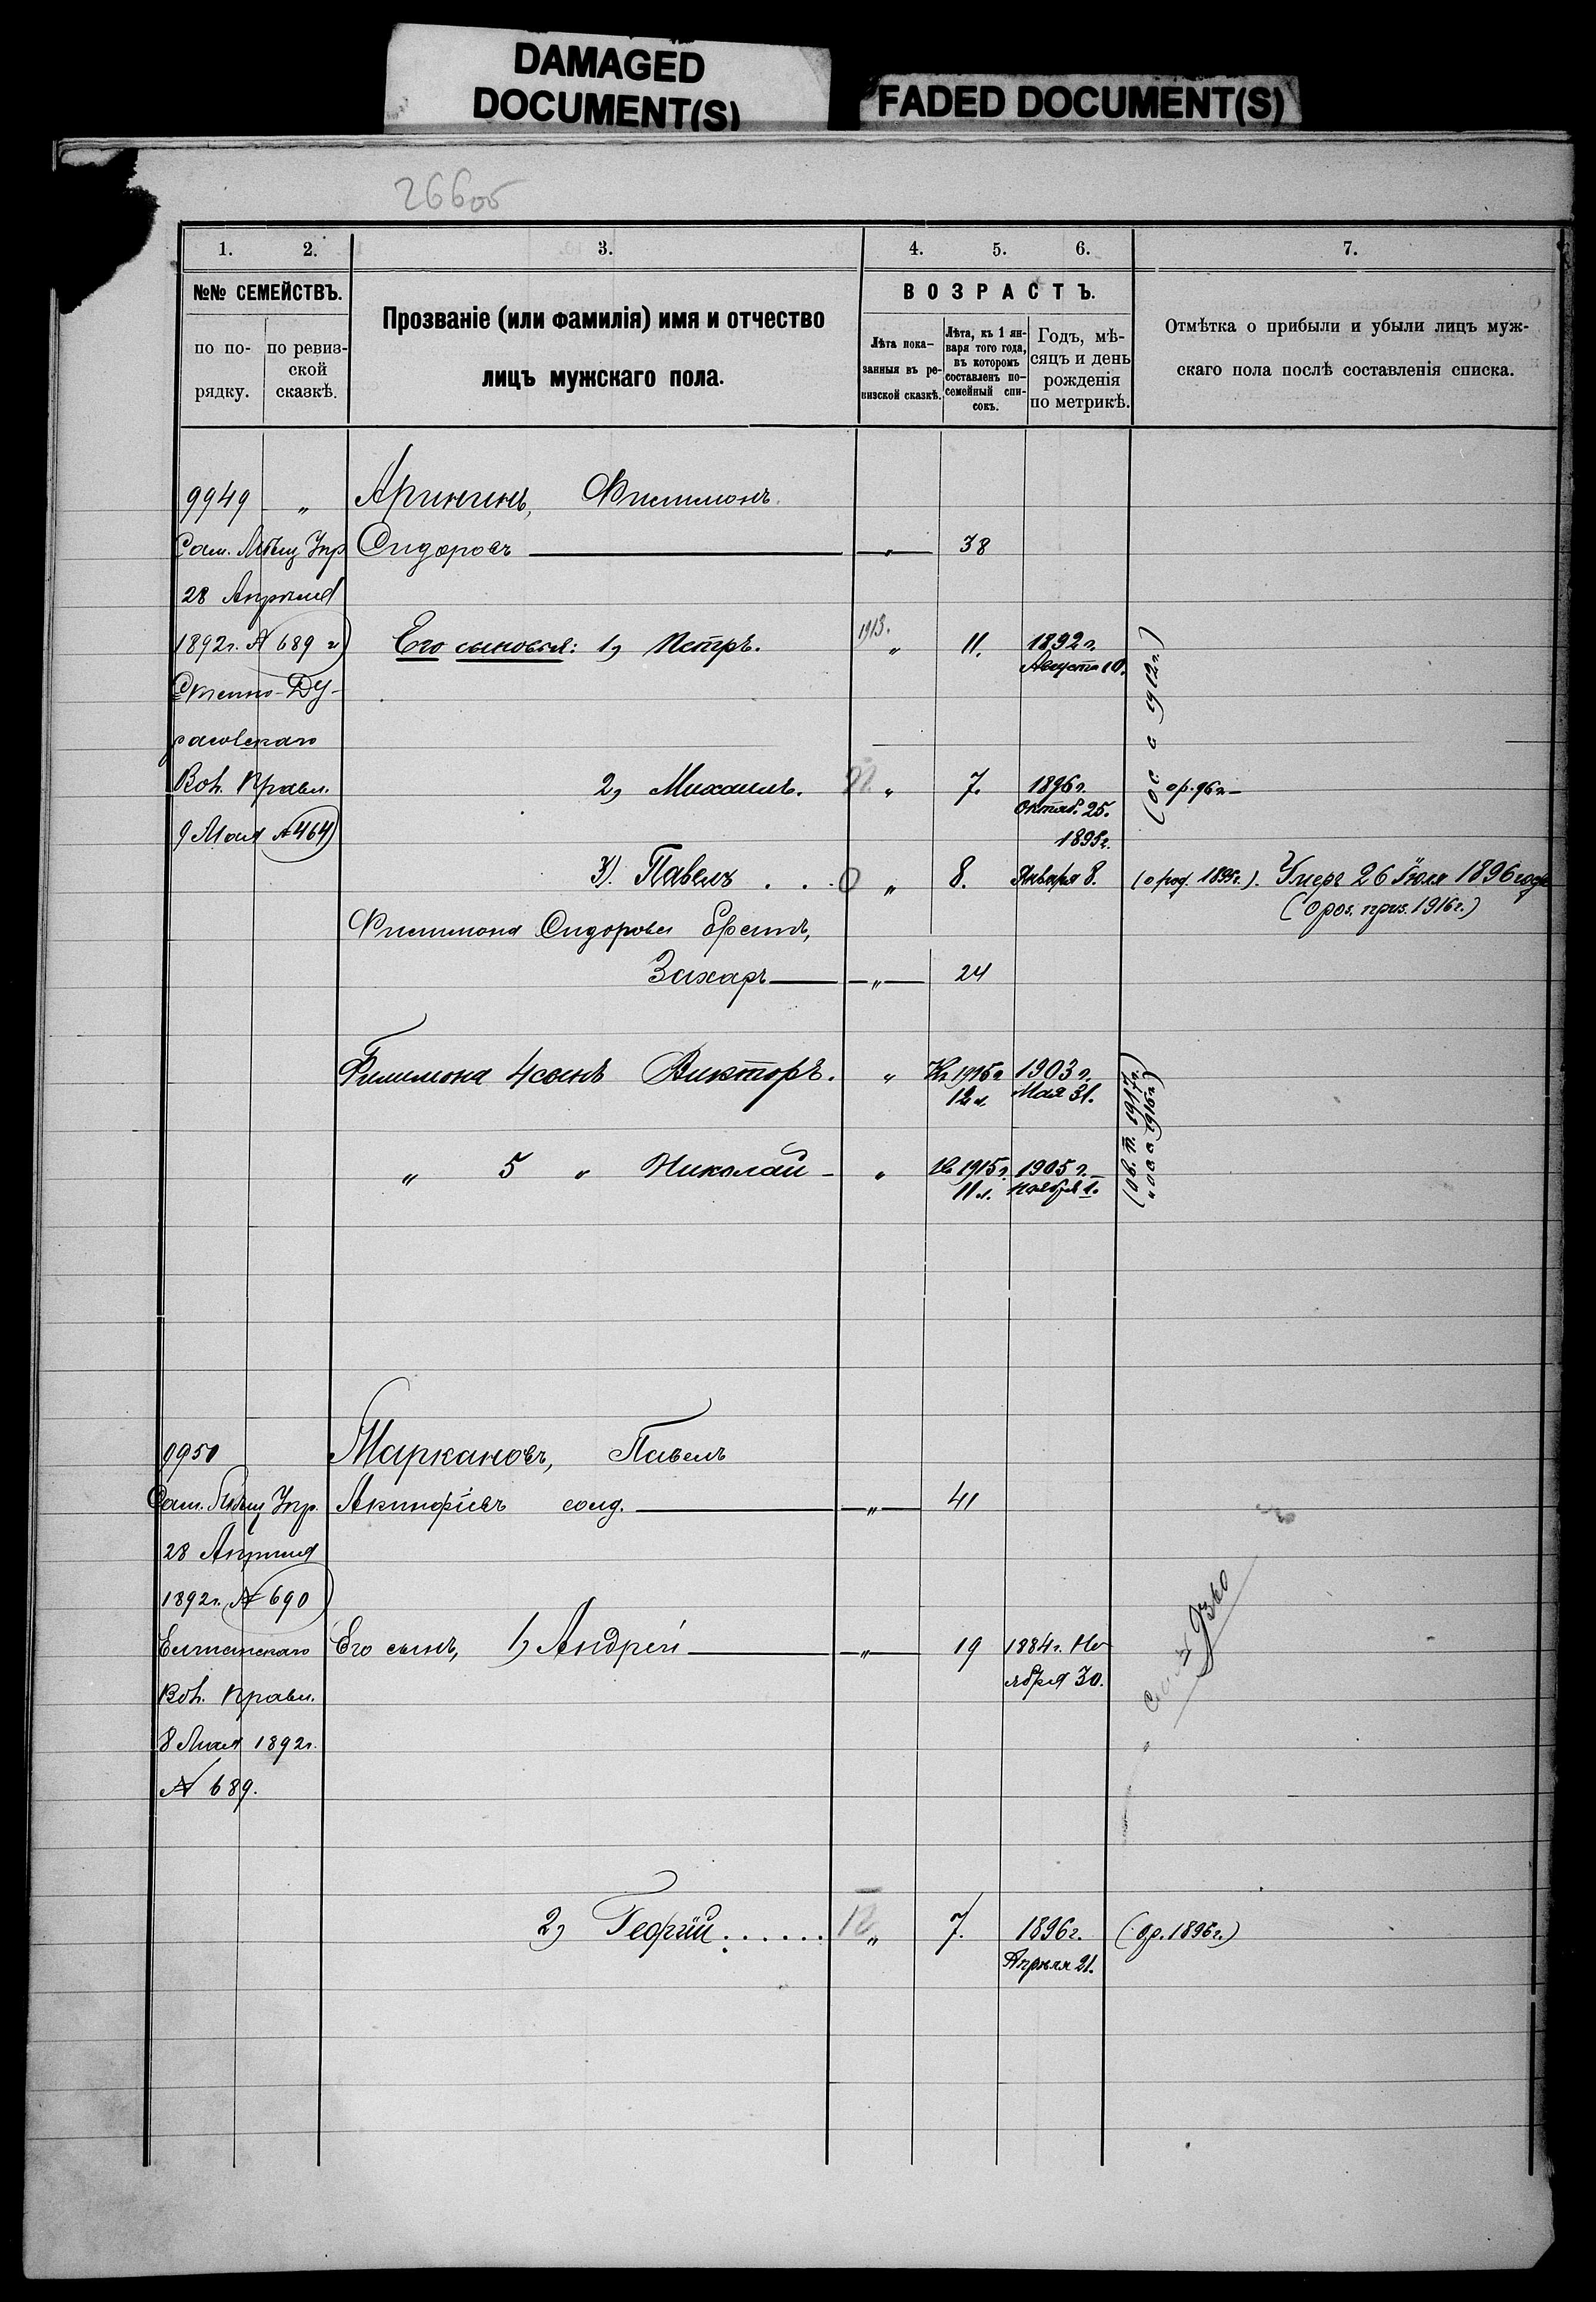 DAMAGED
DOCUMENT(S)
FADED DOCUMENT(S)
266об
1. 2. 3. 4. 5. 6. 7.
№№ СЕМЕЙСТВЪ.
по по-
рядку.
по ревиз-
ской
сказкѣ.
Прозваніе (или фамилія) имя и отчество
лицъ мужскаго пола.
ВОЗРАСТЪ.
Лѣта пока-
занныя въ ре-
визской сказкѣ.
Лѣта, къ 1 ян-
варя того года,
въ которомъ
составленъ по-
семейный спи-
сокъ.
Годъ, мѣ-
сяцъ и день
рожденія
по метрикѣ.
Отмѣтка о прибыли и убыли лицъ муж-
скаго пола послѣ составленія списка.
9949 „ Аринин, Филимонъ
Сам. Мѣщ Упр Сидоровъ „ 38
28 Апрѣля
1892г. № 689 и Его сыновья: 1) Петръ. 1913. „ 11. 1892 г.
Августа 10.
Степно-Ду-
расовскаго
(ос с 1912г.)
Вол. Правл. 2) Михаилъ. „ 7. 1896г. ор. 96г
Октяб. 25.
9 Мая №464)
1895г.
3). Павелъ . . . 0 „ 8. Января 8. (о род. 1895г.). Умеръ 26 Іюля 1896 года
(о роз. приз. 1916г.)
Филимона Сидорова братъ,
Захаръ „ 24
Филимона 4 сынъ Викторъ. „ Къ 1915г 1903 г.
12 л. Мая 31.
„ 5 „ Николай „ Къ 1915г. 1905 г.
11 л. Ноября 1.
1917г.
1916г.)
9950 Маркановъ, Павелъ
Сам. Мѣщ Упр. Акинфіевъ солд. „ 41
28 Апрѣля
1892г. № 690
Елшанскаго Его сынъ, 1) Андрей „ 19 1884г. Но-
ября 30.
Вол. Правл.
8 Мая 1892г.
№ 689.
2) Георгій . . . . . . „ 7. 1896г. (о р. 1896г.)
Апрѣля 21.